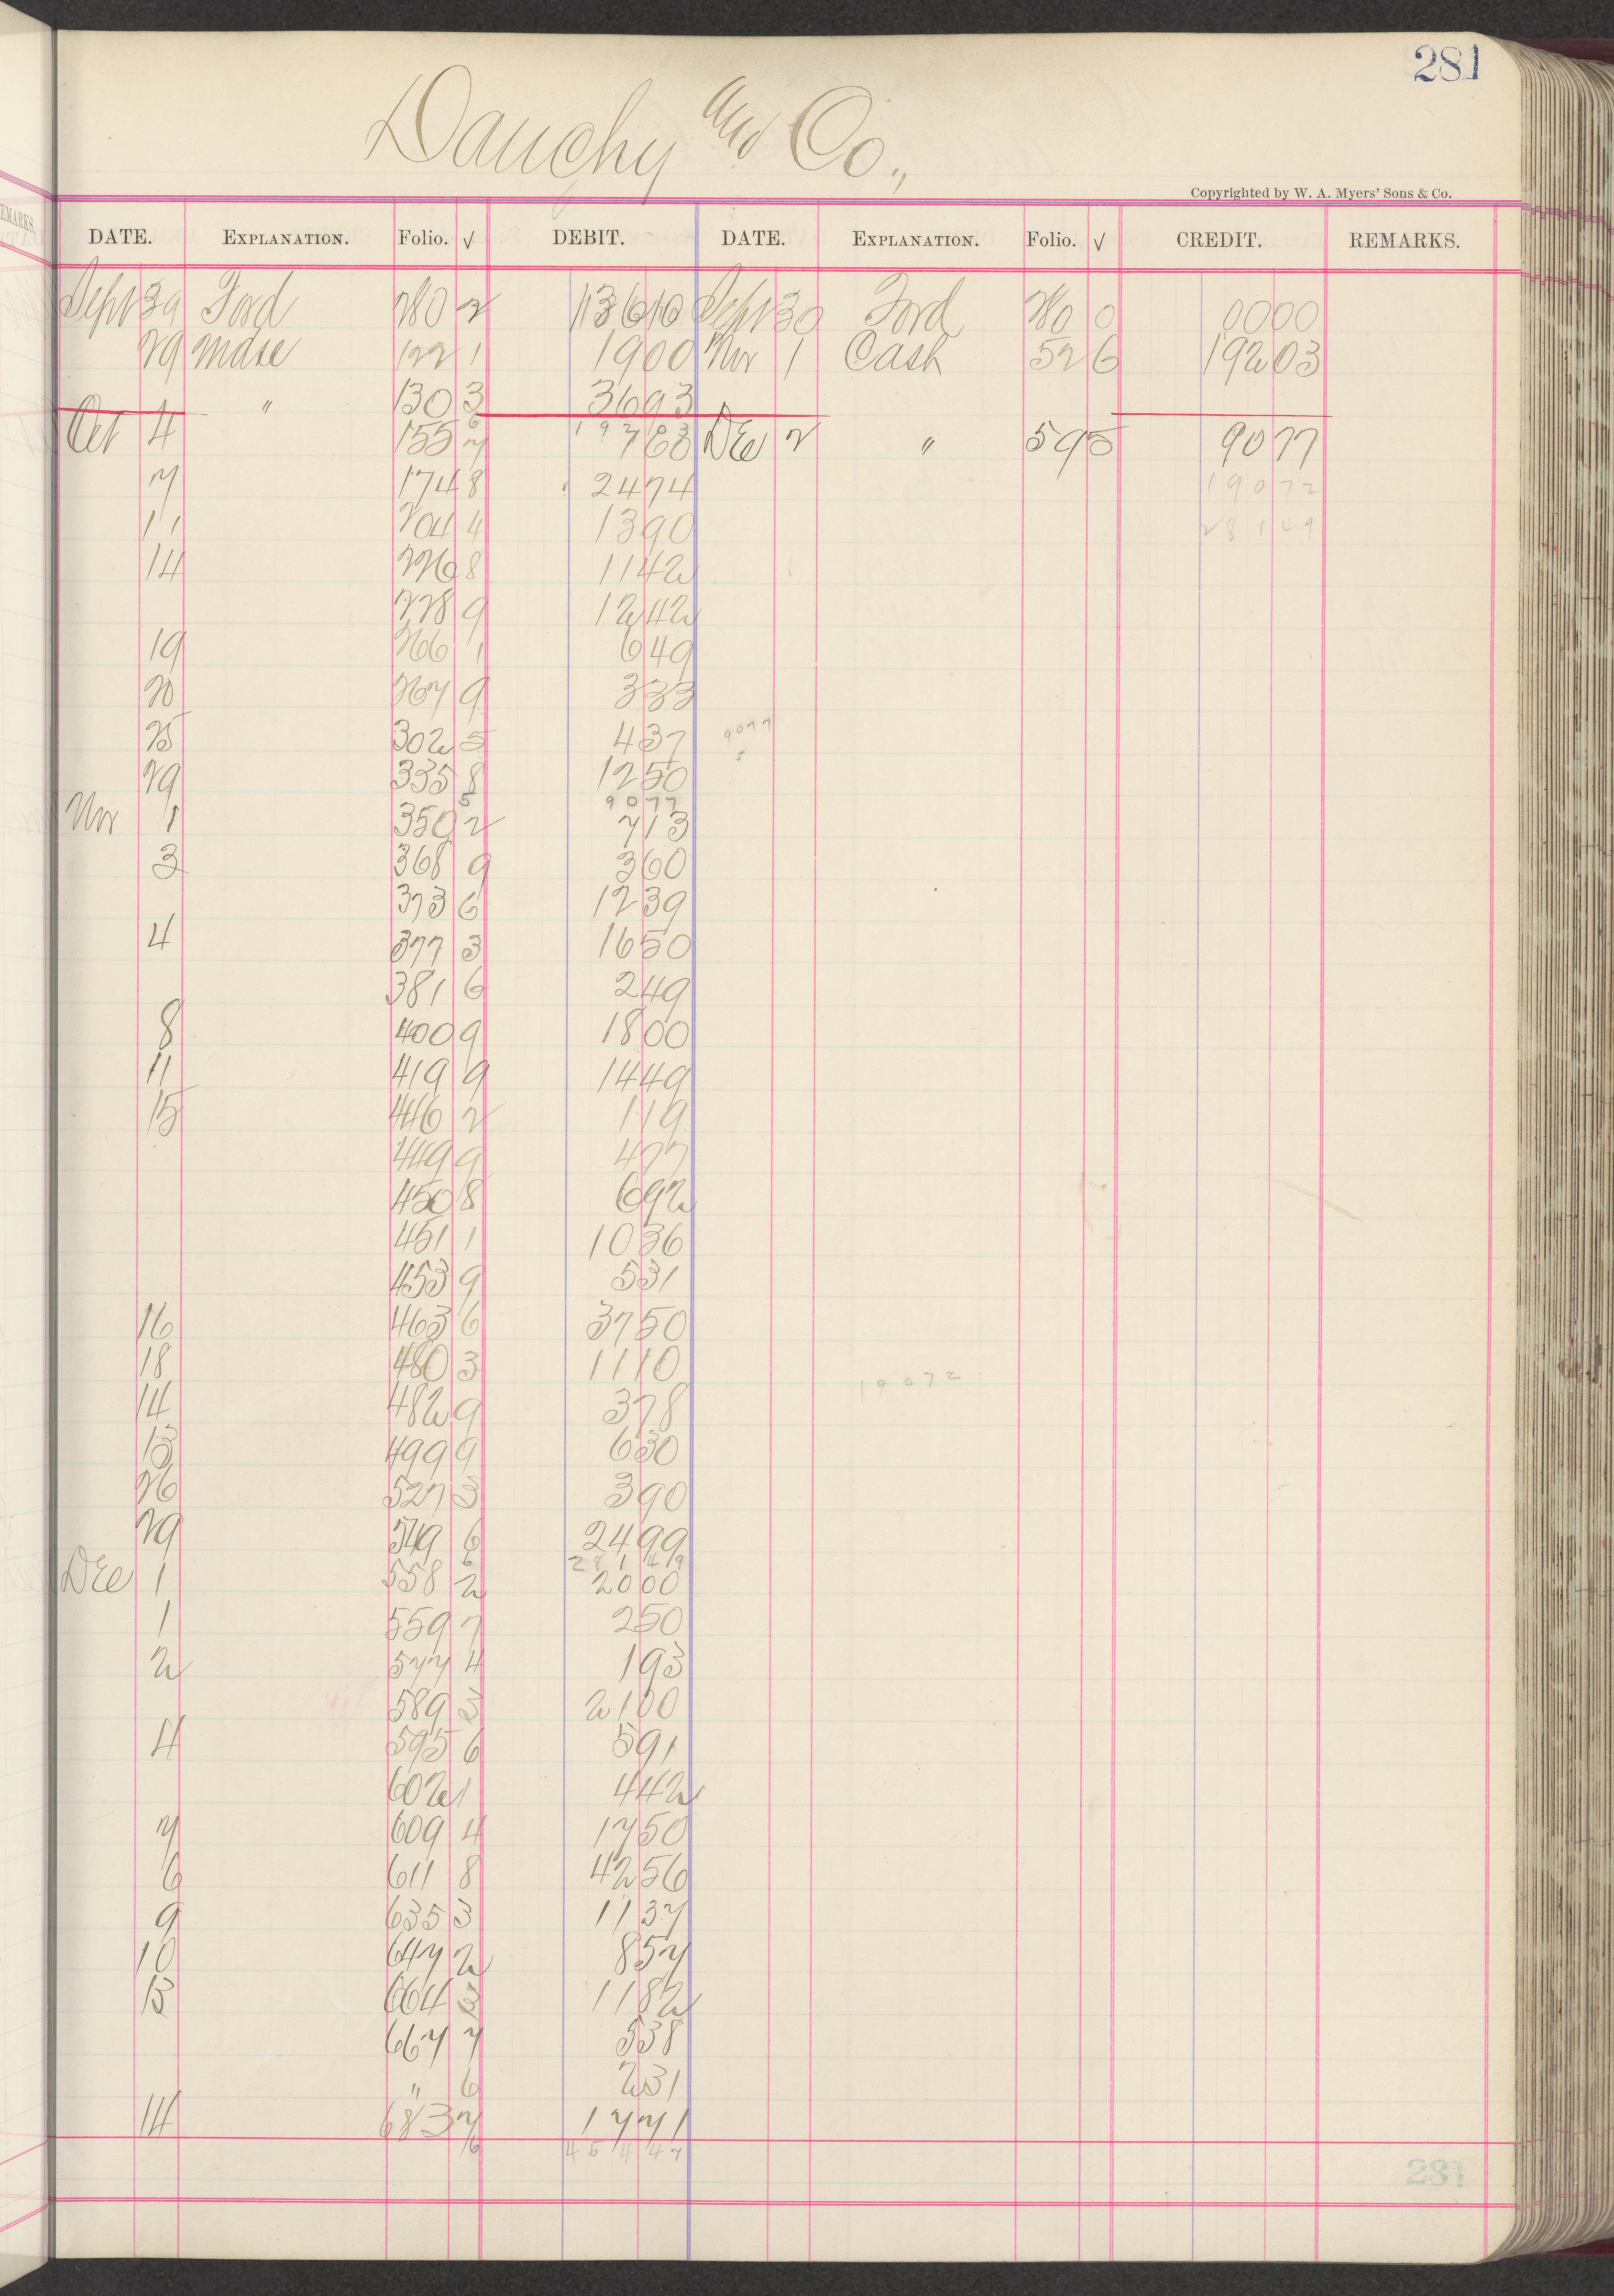 281
Dauchy and Co.,
Copyrighted by W. A. Myers' Sons & Co.
DATE. EXPLANATION. Folio. √ DEBIT. DATE. EXPLANATION. Folio. √ CREDIT. REMARKS.
Sept 30 Ford 280 2 13610 Sept 30 Ford 280 0000
29 Mdse 122 1 1900 Nov 1 Cash 526 19203
" 130 3 3693
Oct 4 155 7 763 Dec 2 " 595 9077
7 174 8 2474 19072
11 204 4 1390 28149
14 226 8 1142
228 9 1242
19 266 1 649
20 267 9 333
25 302 5 437 9077
29 335 8 1250
9077
Nov 1 350 2 713
3 368 9 360
373 6 1239
4 377 3 1650
381 6 249
8 400 9 1800
11 419 9 1449
15 446 2 119
449 9 477
450 8 692
451 1 1036
453 9 531
16 463 6 3750
18 480 3 1110 19072
14 482 9 378
15 499 9 630
26 527 3 390
29 549 6 2499
28149
Dec 1 558 2 2000
1 559 7 250
2 577 4 193
589 3 2100
4 595 6 591
602 1 442
7 609 4 1750
6 611 8 4256
9 635 3 1137
10 647 2 857
13 664 3 1182
667 7 538
" 6 231
14 683 7 1771
6 45447
281